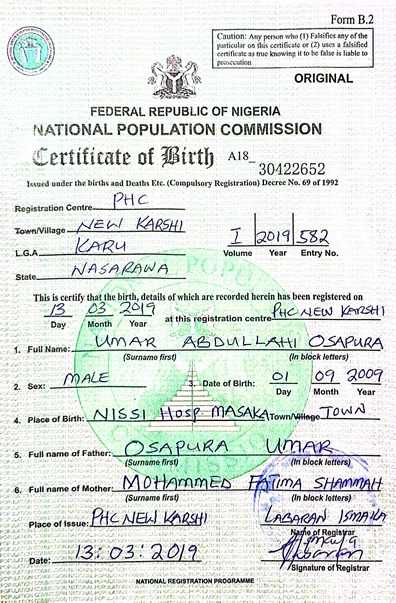 Form B.2
Caution: Any person who (1) Falsifies any of the
particular on this certificate or (2) uses a falsified
certificate as true knowing it to be false is liable to
prosecution
ORIGINAL
FEDERAL REPUBLIC OF NIGERIA
NATIONAL POPULATION COMMISSION
Certificate of Birth A18_ 30422652
Issued under the births and Deaths Etc. (Compulsory Registration) Decree No. 69 of 1992
Registration Centre PHC
Town/Village NEW KARSHI
L.G.A KARU
State NASARAWA
I 2019 582
Volume Year Entry No.
This is certify that the birth, details of which are recorded herein has been registered on
13 03 2019 at this registration centre PHC NEW KARSHI
Day Month Year
1. Full Name: UMAR ABDULLAHI OSAPURA
(Surname first) (In block letters)
2. Sex: MALE 3. Date of Birth: 01 09 2009
Day Month Year
4. Place of Birth: NISSI HOSP MASAKA Town/Village TOWN
5. Full name of Father: OSAPURA UMAR
(Surname first) (In block letters)
6. Full name of Mother: MOHAMMED FATIMA SHAMMAH
(Surname first) (In block letters)
Place of Issue: PHC NEW KARSHI LABARAN ISMAILA
Name of Registrar
Date: 13:03:2019
Signature of Registrar
NATIONAL REGISTRATION PROGRAMME